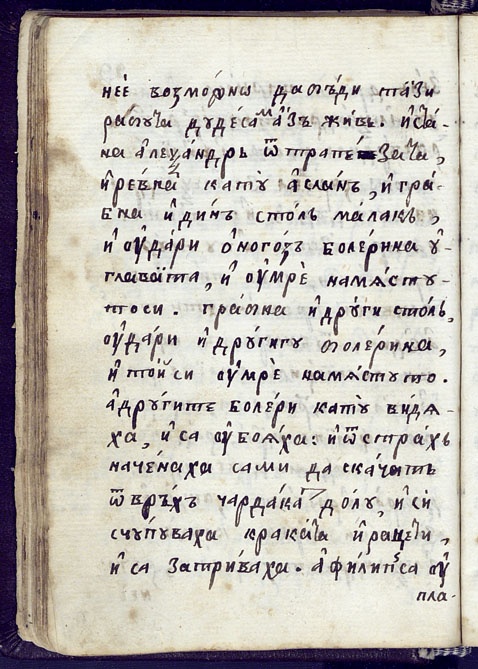 нее́ возмо́жно да бѫди таѝзи
рабу́та дуде́са а́зъ живь. и́ста́-
на але́ѯандрь ѿ трапе́зата,
и́ре́вна кату̀ а́сланъ, и́гра́-
бна и́ди́нъ сто́ль ма́лакъ,
и́ ѹ́дари о́ного́зъ боле́рина ѹ́-
глава́та, и́ ѹ́мрѐ намѧсту-
тоси. гра́бна и́дрꙋ́ги сто́ль,
ѹ́да́ри и́дрꙋ́гигу боле́рина,
и́ то́йси ѹ́мрѐ намѧ́стуто.
а́дрꙋ́гите боле́ри кату̀ ви́дѧ-
ха, и́са ѹ́боѧ́ха: и́ ѿ стра́хь
наче́наха сами да ска́чатъ
ѿ врь́хъ чарда́ка до́лу, и́си
счу́пуваха крака́та и́раце́ти,
и́са затри́ваха. а́фили́пъ са ѹ́
пла-